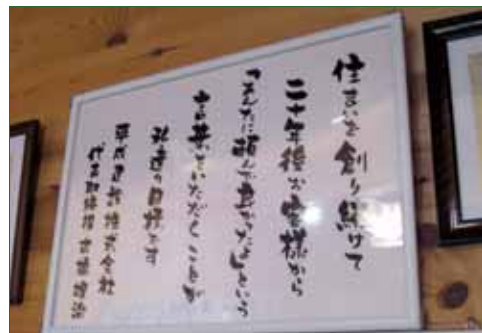 住まいを創り続けて
二十年後お客様から
「あんたに頼んで良かったよ」という
言葉をいただくことが
私達の目標です
平成建設株式会社
代表取締役